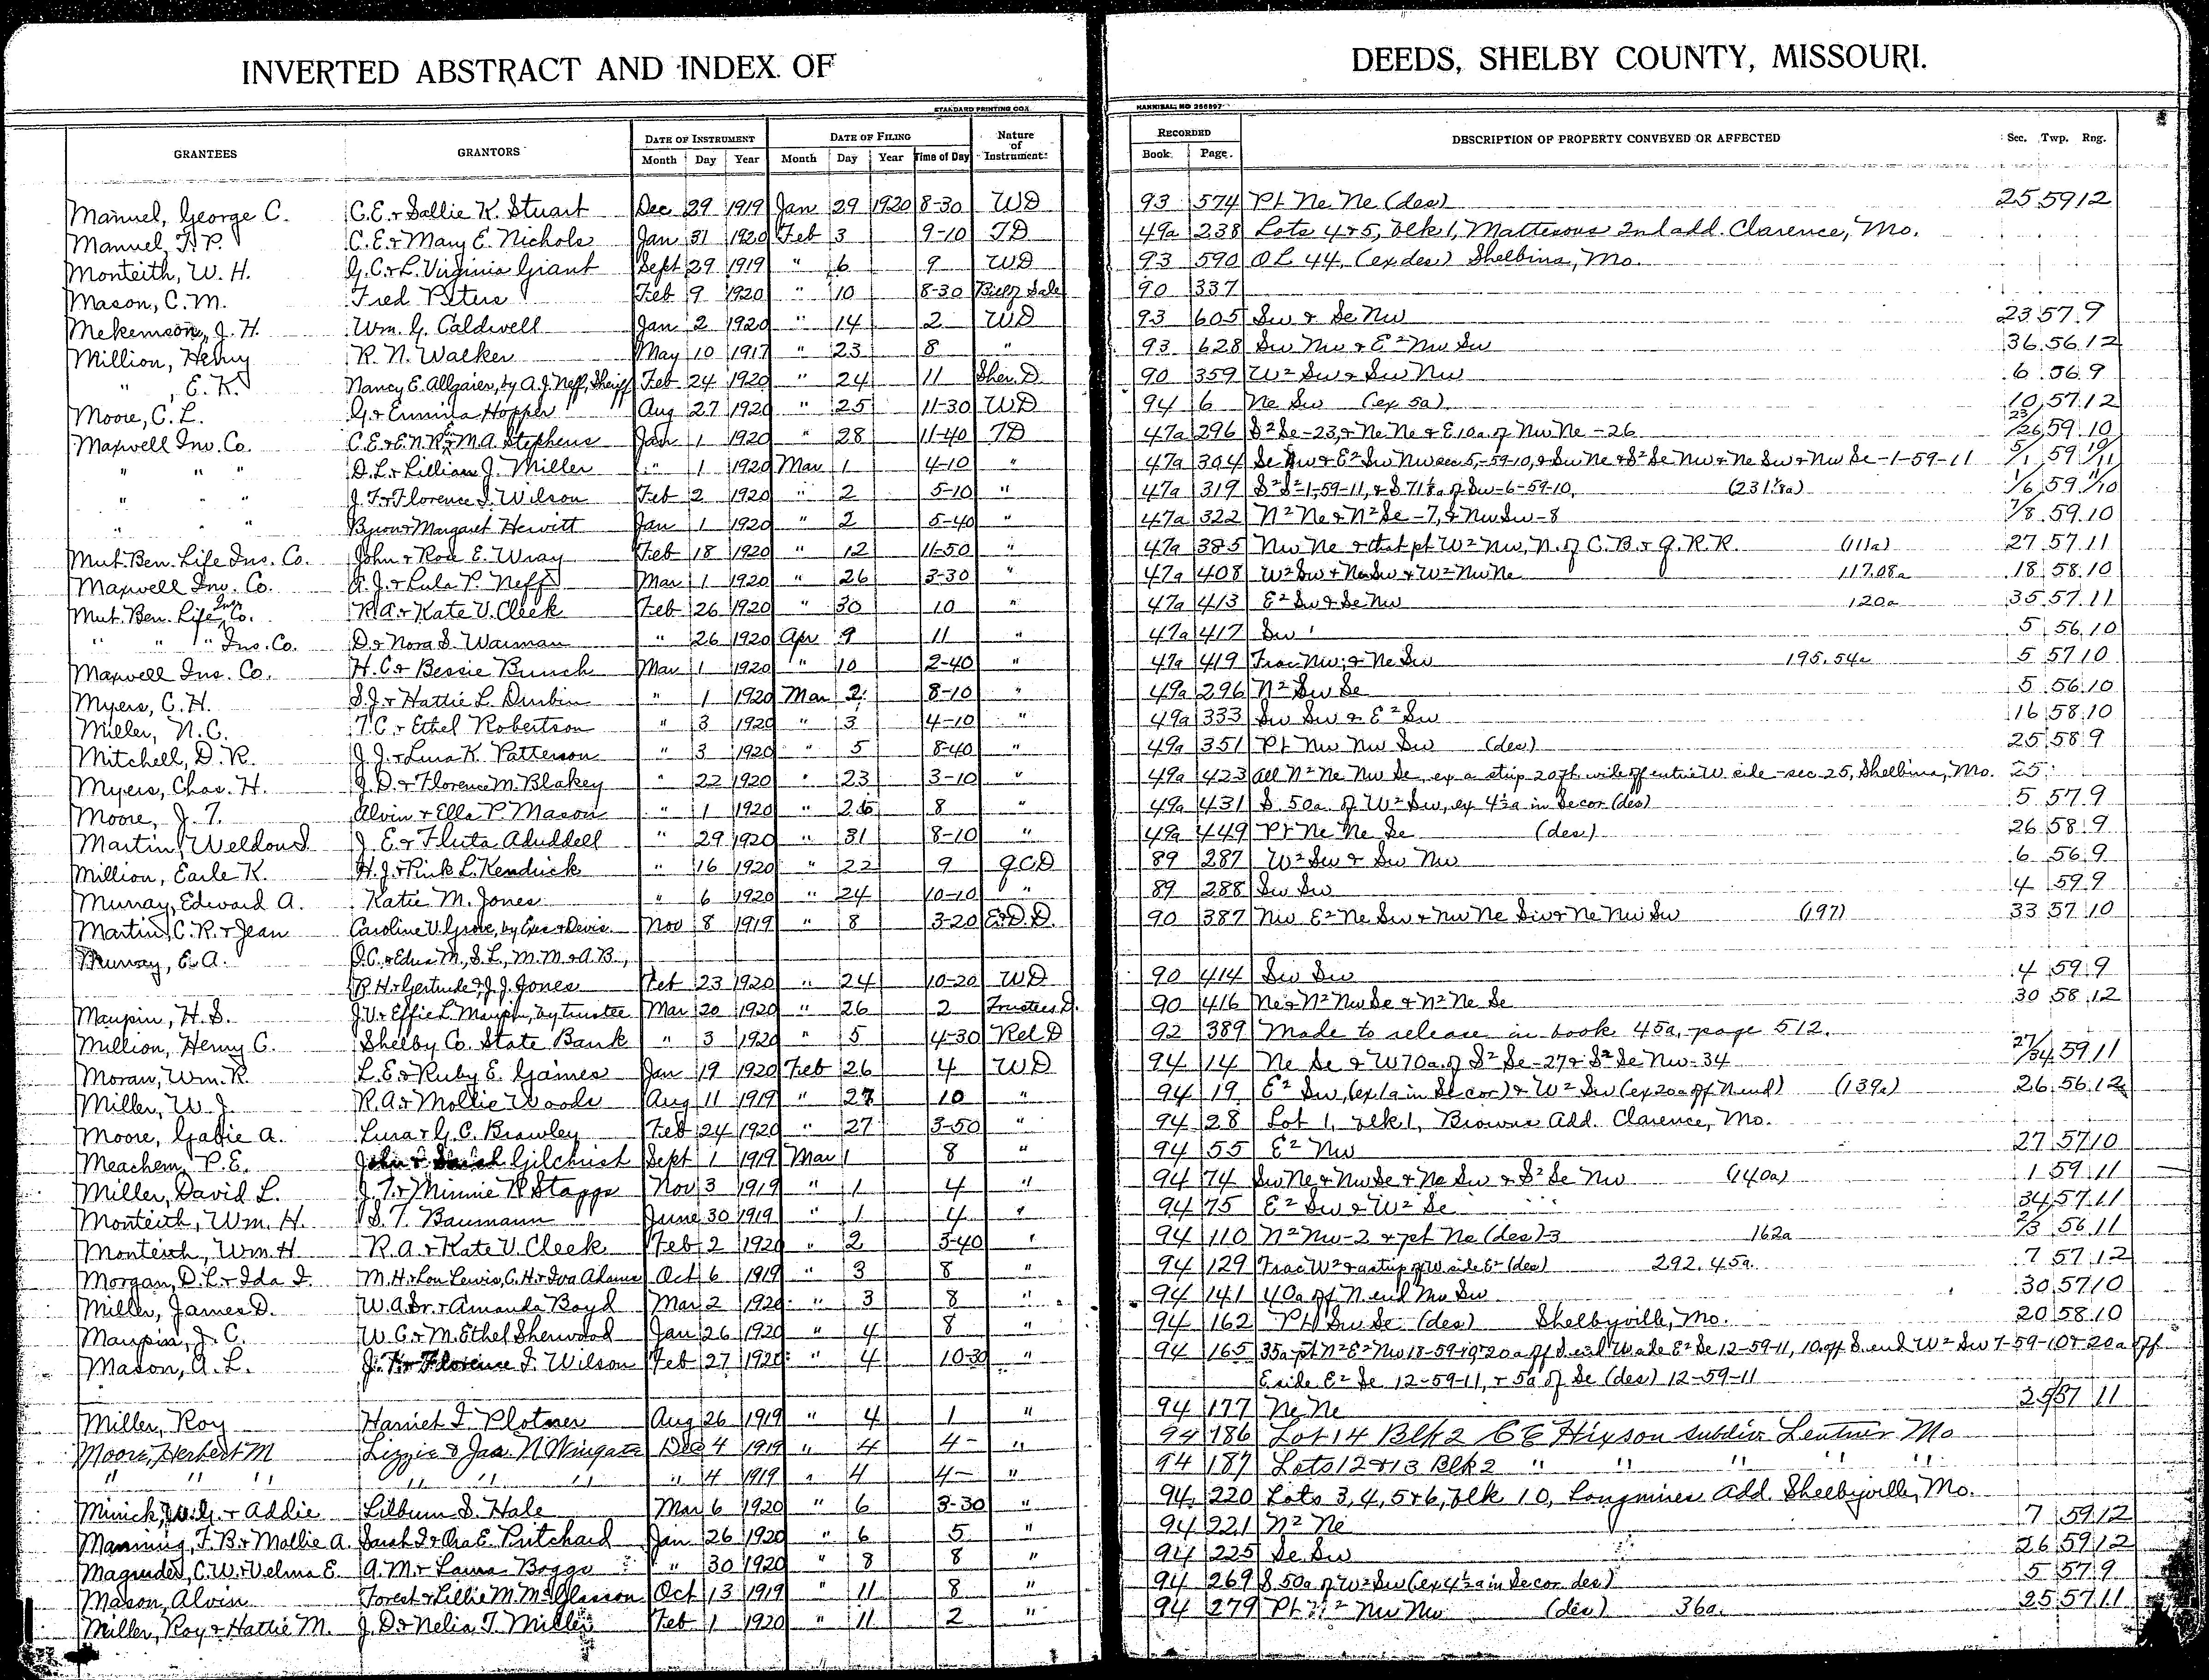 INVERTED ABSTRACT AND INDEX OF DEEDS, SHELBY COUNTY, MISSOURI.
STANDARD PRINTING CO. HANNIBAL, MO
GRANTEES GRANTORS DATE OF INSTRUMENT DATE OF FILING Nature of Instrument RECORDED DESCRIPTION OF PROPERTY CONVEYED OR AFFECTED Sec. Twp. Rng.
Month Day Year Month Day Year Time of Day Book Page.
Manuel, George C. C.E. & Sallie K. Stuart Dec 29 1919 Jan 29 1920 8-30 WD 93 574 Pt Ne Ne (des) 25 59 12
Manuel, F.P. C.E. & Mary E. Nichols Jan 31 1920 Feb 3 9-10 TD 49a 238 Lots 4 & 5, blk 1, Mattesons 2nd add. Clarence, Mo.
Monteith, W.H. G.C. & L. Virginia Giant Sept 29 1919 " 6 9 WD 93 590 OL 44, (ex des) Shelbina, Mo.
Mason, C.M. Fred Peters Feb 9 1920 " 10 8-30 Bill of Sale 90 337
Mekemson, J.H. Wm. G. Caldwell Jan 2 1920 " 14 2 WD 93 605 Sw & Se Nw 23 57 9
Million, Henry R.N. Walker May 10 1917 " 23 8 " 93 628 Sw Nw & E² Nw Sw 36 56 12
" , E.K. Nancy E. Allgaier, by A.J. Neff, Sheriff Feb 24 1920 " 24 11 Sher. D. 90 359 W² Sw & Sw Nw 6 56 9
Moore, C.L. G. & Ermina Hopper Aug 27 1920 " 25 11-30 WD 94 6 Ne Sw (ex 5a) 10 57 12
Maxwell Inv. Co. C.E. & E.N.R. & M.A. Stephens Jan 1 1920 " 28 11-40 TD 47a 296 S² Se-23, & Ne Ne & E 10a. of Nw Ne-26 23/26 59 10
" " " D.L. & Lillian J. Miller " 1 1920 Mar 1 4-10 " 47a 304 Se Nw & E² Sw Nw sec 5,-59-10, & Sw Ne & S² Se Nw & Ne Sw & Nw Se-1-59-11 5/1 59 10/11
" " " J.F. & Florence I. Wilson Feb 2 1920 " 2 5-10 " 47a 319 S² S²-1-59-11, & S 71⅛a of Sw-6-59-10, (231⅛a) 1/6 59 11/10
" " " Byron & Margaret Hewitt Jan 1 1920 " 2 5-40 " 47a 322 N² Ne & N² Se-7, & Nw Sw-8 7/8 59 10
Mut. Ben. Life Ins. Co. John & Roe E. Wray Feb 18 1920 " 12 11-50 " 47a 385 Nw Ne & that pt W² Nw, N. of C.B. & Q.R.R. (111a) 27 57 11
Maxwell Inv. Co. A.J. & Lula P. Neff Mar 1 1920 " 26 3-30 " 47a 408 W² Sw & Ne Sw & W² Nw Ne 117.08a 18 58 10
Mut. Ben. Life Ins. Co. R.A. & Kate V. Cleek Feb 26 1920 " 30 10 " 47a 413 E² Sw & Se Nw 120a 35 57 11
" " " Ins. Co. D. & Nora S. Waiman " 26 1920 Apr 9 11 " 47a 417 Sw 5 56 10
Maxwell Ins. Co. H.C. & Bessie Bunch Mar 1 1920 " 10 2-40 " 47a 419 Frac Nw, & Ne Sw 195.54a 5 57 10
Myers, C.H. S.J. & Hattie L. Durbin " 1 1920 Mar 2 8-10 " 49a 296 N² Sw Se 5 56 10
Miller, N.C. T.C. & Ethel Robertson " 3 1920 " 3 4-10 " 49a 333 Sw Sw & E² Sw 16 58 10
Mitchell, D.R. J.J. & Lura K. Patterson " 3 1920 " 5 8-40 " 49a 351 Pt Nw Nw Sw (des) 25 58 9
Myers, Chas. H. J.D. & Florence M. Blakey " 22 1920 " 23 3-10 " 49a 423 All N² Ne Nw Se, ex a strip 20ft wide off entire W side-sec 25, Shelbina, Mo. 25
Moore, J.T. Alvin & Ella P. Mason " 1 1920 " 26 8 " 49a 431 S. 50a. of W² Sw, ex 4½a in Se cor (des) 5 57 9
Martin, Weldon J. E. & Fluta Aduddell " 29 1920 " 31 8-10 " 49a 449 Pt Ne Ne Se (des) 26 58 9
Million, Earle K. H.J. & Pink L. Kendrick " 16 1920 " 22 9 QCD 89 287 W² Sw & Sw Nw 6 56 9
Murray, Edward A. Katie M. Jones " 6 1920 " 24 10-10 " 89 288 Sw Sw 4 59 9
Martin, C.R. & Jean Caroline V. Grove, by Exec & Devis. Nov 8 1919 " 8 3-20 E&D.D. 90 387 Nw E² Ne Sw & Nw Ne Sw & Ne Nw Sw (197) 33 57 10
Murray, E.A. O.C. & Edna M., S.L., M.M. & A.B.,
R.H. & Gertrude & J.J. Jones Feb 23 1920 " 24 10-20 WD 90 414 Sw Sw 4 59 9
Maupin, H.S. J.V. & Effie L. Maupin, by trustee Mar 20 1920 " 26 2 Trustees D. 90 416 Ne & N² Nw Se & N² Ne Se 30 58 12
Million, Henry C. Shelby Co. State Bank " 3 1920 " 5 4-30 Rel. D 92 389 Made to release in book 45a, page 512.
Moran, Wm. R. L.E. & Ruby E. Gaines Jan 19 1920 Feb 26 4 WD 94 14 Ne Se & W 70a. of S² Se-27 & S² Se Nw-34 27/34 59 11
Miller, W.J. R.A. & Mollie Woods Aug 11 1919 " 27 10 " 94 19 E² Sw, (ex 1a in Se cor) & W² Sw (ex 20a off N end) (139a) 26 56 12
Moore, Gabie A. Lura & G.C. Brawley Feb 24 1920 " 27 3-50 " 94 28 Lot 1, blk 1, Browns Add. Clarence, Mo.
Meachem, P.E. John & Sarah Gilchrist Sept 1 1919 Mar 1 8 " 94 55 E² Nw 27 57 10
Miller, David L. J.T. & Minnie R. Stapps Nov 3 1919 " 1 4 " 94 74 Sw Ne & Nw Se & Ne Sw & S² Se Nw (140a) 1 59 11
Monteith, Wm. H. S.T. Baumann June 30 1919 " 1 4 " 94 75 E² Sw & W² Se 34 57 11
Monteith, Wm H R.A. & Kate V. Cleek Feb 2 1920 " 2 3-40 " 94 110 N² Nw-2 & pt Ne (des)-3 162a 2/3 56 11
Morgan, D.L. & Ida I. M.H. & Lou Lewis, C.H. & Iva Adams Oct 6 1919 " 3 8 " 94 129 Frac W² & a strip off W side E² (des) 292.45a. 7 57 12
Miller, James D. W.A. Sr. & Amanda Boyd Mar 2 1920 " 3 8 " 94 141 40a off N end Nw Sw 30 57 10
Maupin, J.C. W.C. & M. Ethel Sherwood Jan 26 1920 " 4 8 " 94 162 Pt Sw Se (des) Shelbyville, Mo. 20 58 10
Mason, A.L. J.F. & Florence I. Wilson Feb 27 1920 " 4 10-30 " 94 165 35a pt N² E² Nw 18-59-10 & 20a off S end W side E² Se 12-59-11, 10 off S. end W² Sw 7-59-10 & 20a off
E side E² Se 12-59-11, & 5a of Se (des) 12-59-11
Miller, Roy Harriet I. Plotner Aug 26 1919 " 4 1 " 94 177 Ne Ne 25 57 11
Moore, Herbert M Lizzie & Jas. N Wingate Dec 4 1919 " 4 4- " 94 186 Lot 14 Blk 2 CC Hixson subdiv Lentner Mo
" " " " " " " 4 1919 " 4 4- " 94 187 Lots 12 & 13 Blk 2 " " " " "
Minick, W.G. & Addie Lilburn S. Hale Mar 6 1920 " 6 3-30 " 94 220 Lots 3, 4, 5 & 6, blk 10, Longmires Add. Shelbyville, Mo.
Manning, F.B. & Mollie A. Sarah I. & Ora E. Pritchard Jan 26 1920 " 6 5 " 94 221 N² Ne 7 59 12
Magruder, C.W. & Velma E. A.M. & Laura Boggs " 30 1920 " 8 8 " 94 225 Se Sw 26 59 12
Mason, Alvin Forest & Lillie M. McGlasson Oct 13 1919 " 11 8 " 94 269 S 50a of W² Sw (ex 4½a in Se cor des) 5 57 9
Miller, Roy & Hattie M. J.D. & Nelia T. Miller Feb 1 1920 " 11 2 " 94 279 Pt N² Nw Nw (des) 36a. 25 57 11